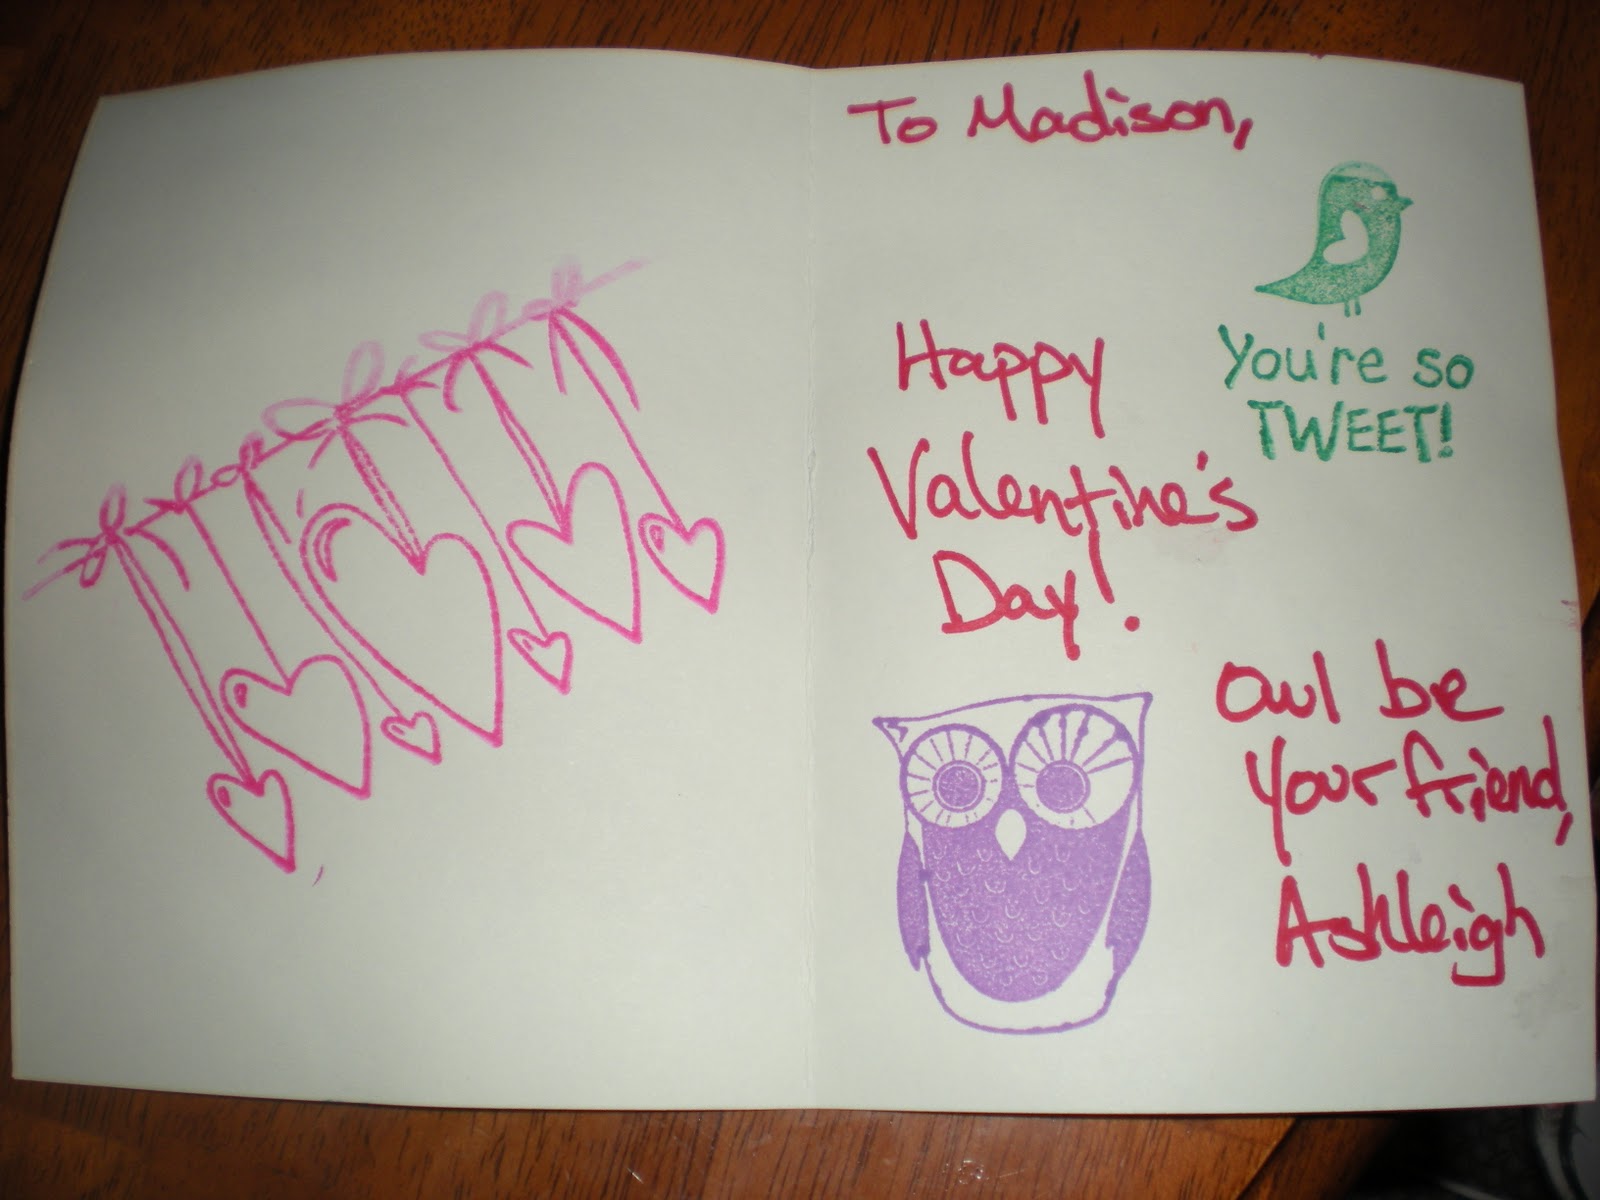 To Madison,
You're so
TWEET!
Happy
Valentine's
Day!
Owl be
your friend,
Ashleigh